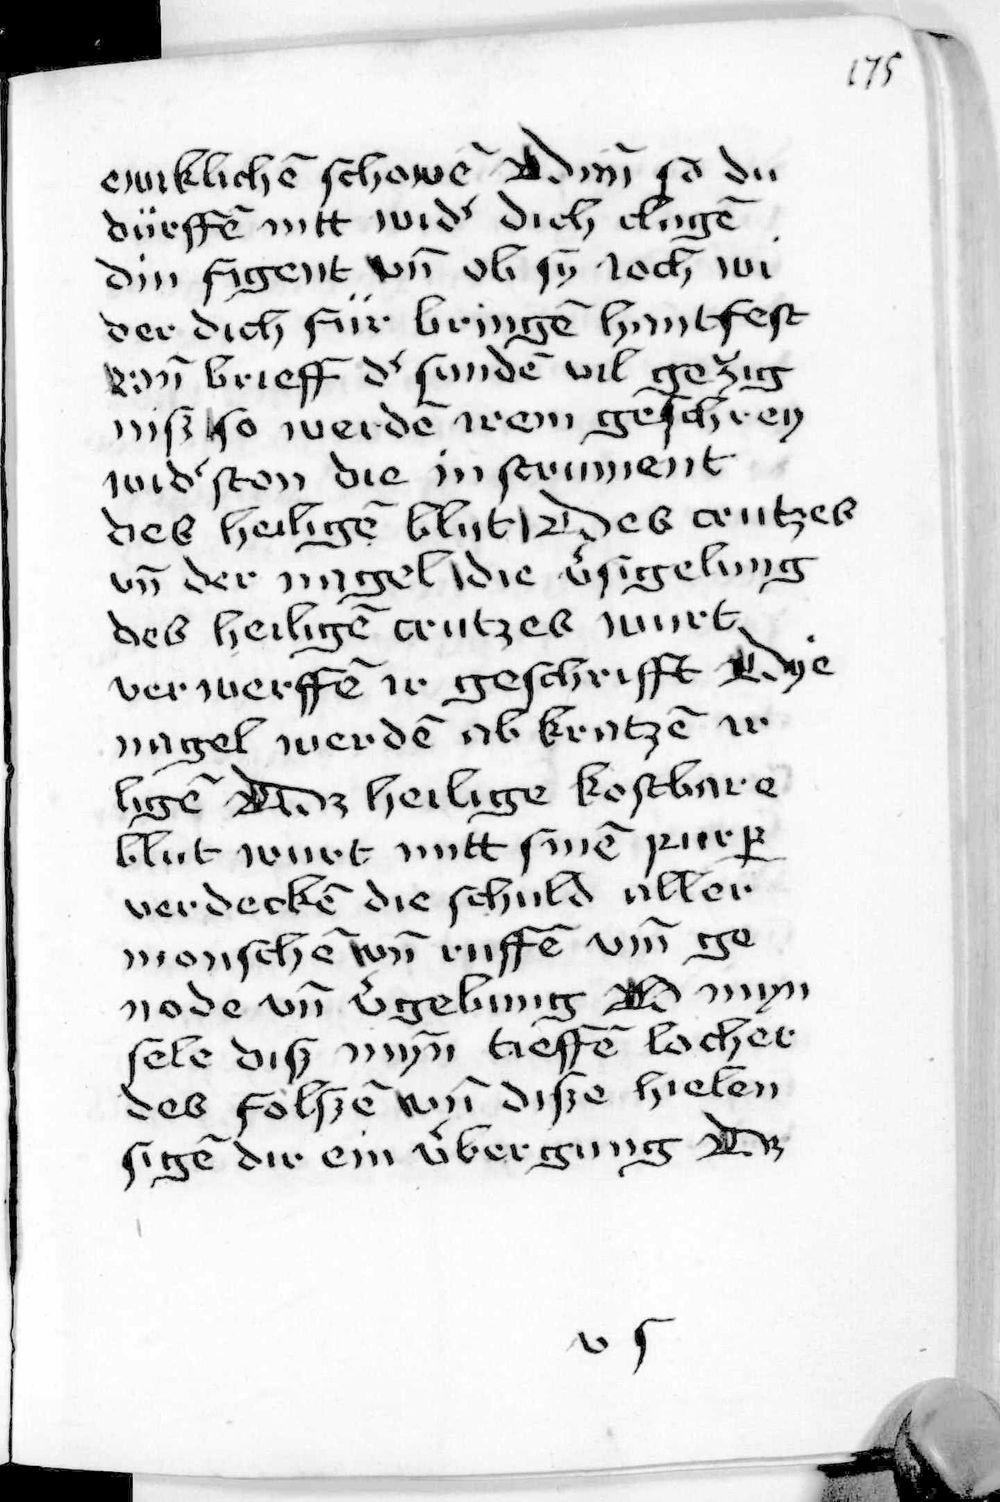 175
ewiklichē schowē Wañ so du
dürffē nitt widʾ dich clagē
din figent vñ ob sÿ ioch wi
der dich für bringē hantfest
vañ brieff dʾ sundē vil gezüg
niß so werdē irem geschrey
widʾston die instrument
des heiligē blut Des crutzes
vñ der nagel die v̓sigelung
des heiligē crutzes wurt
verwerffē ir geschrifft Dye
nagel werdē ab kratzē ir
ligē Dz heilige kostbare
blut wurt mitt sinē purpᷓ
verdeckē die schuld aller
monschē vñ ruffē vm̄ ge
node vñ v̓gebung O myn
sele diß myñ tieffē locher
des felßē vñ diße hielen
sigē dir ein v̓bergung Dz
v 5